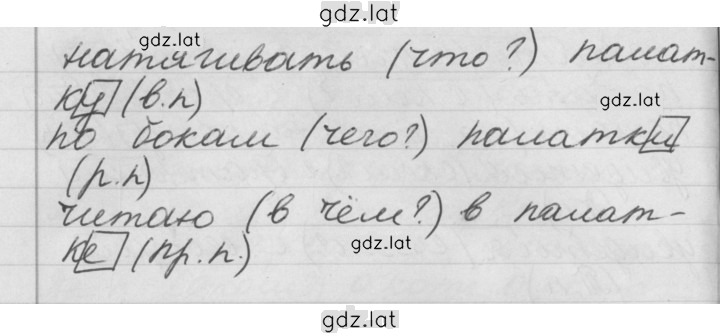 gdz.lat
gdz.lat
натягивать (что?) палат-
ку (в.п)
gdz.lat
по бокам (чего?) палатки
(р.п)
читаю (в чём?) в палат-
gdz.lat
ке (пр.п.)
gdz.lat